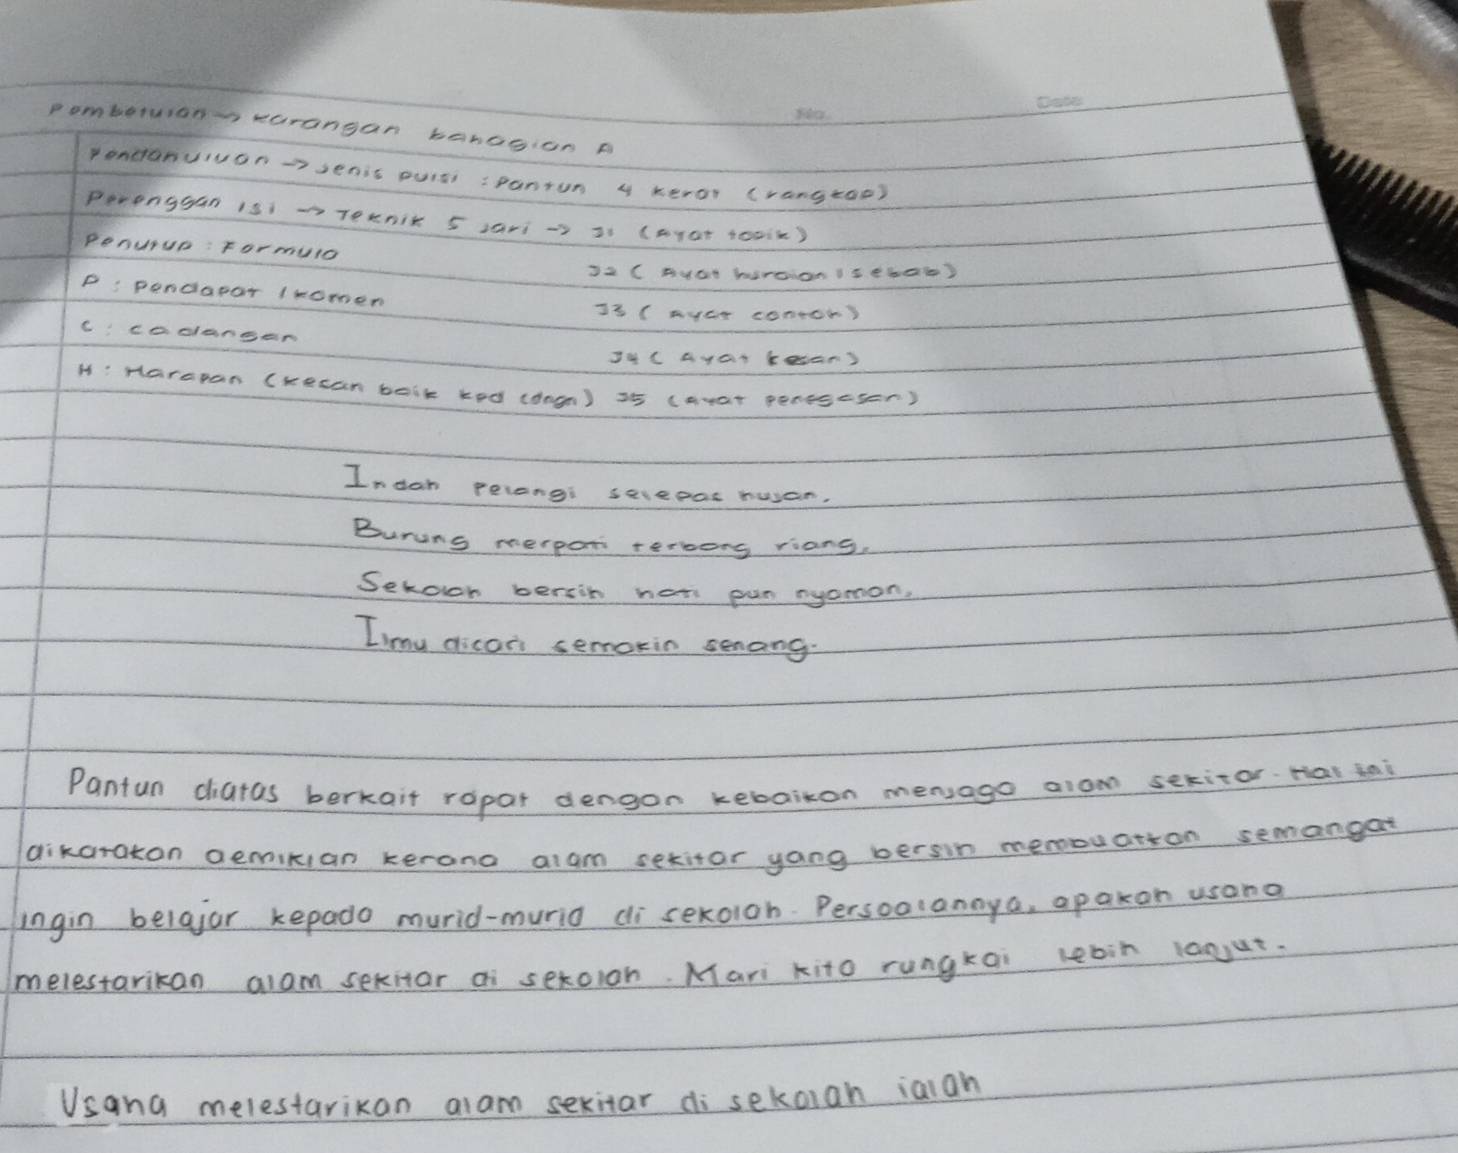 No. Date
Pembetulan → Karangan bahagian A
Pendahuluan → Jenis puisi : Pantun 4 kerat (rangkap)
Perenggan isi → Teknik 5 jari → J1 (Ayat topik)
Penutup : Formula J2 (Ayat huraian / sebab)
P : Pendapat / Komen J3 (Ayat contoh)
C : Cadangan J4 (Ayat kesan)
H : Harapan (kesan baik kpd (dngn) J5 (Ayat penegasan)
Indah pelangi selepas hujan,
Burung merpati terbang riang,
Sekolah bersih hati pun nyaman,
Ilmu dicari semakin senang.
Pantun diatas berkait rapat dengan kebaikan menjaga alam sekitar. Hal ini
dikatakan demikian kerana alam sekitar yang bersih membuatkan semangat
ingin belajar kepada murid-murid di sekolah. Persoalannya, apakah usaha
melestarikan alam sekitar di sekolah. Mari kita rungkai lebih lanjut.
Usaha melestarikan alam sekitar di sekolah ialah